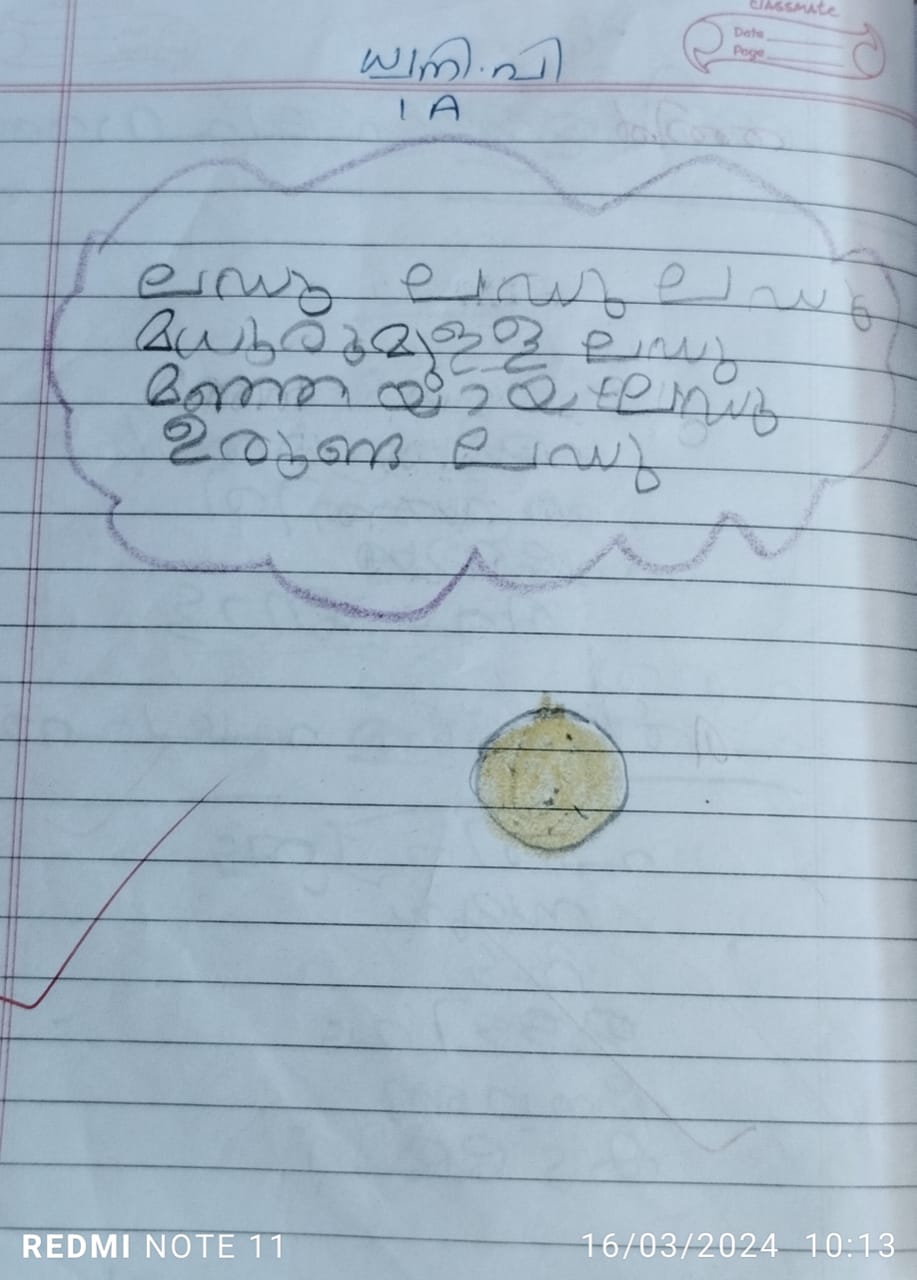 CLASSMATE
Date
Page
ധ്വനി.വി
1 A
ലഡു ലഡു ലഡു
മധുരുമുള്ള ലഡു
മഞ്ഞ ലഡു
ഉരുണ്ട ലഡു
REDMI NOTE 11
16/03/2024 10:13